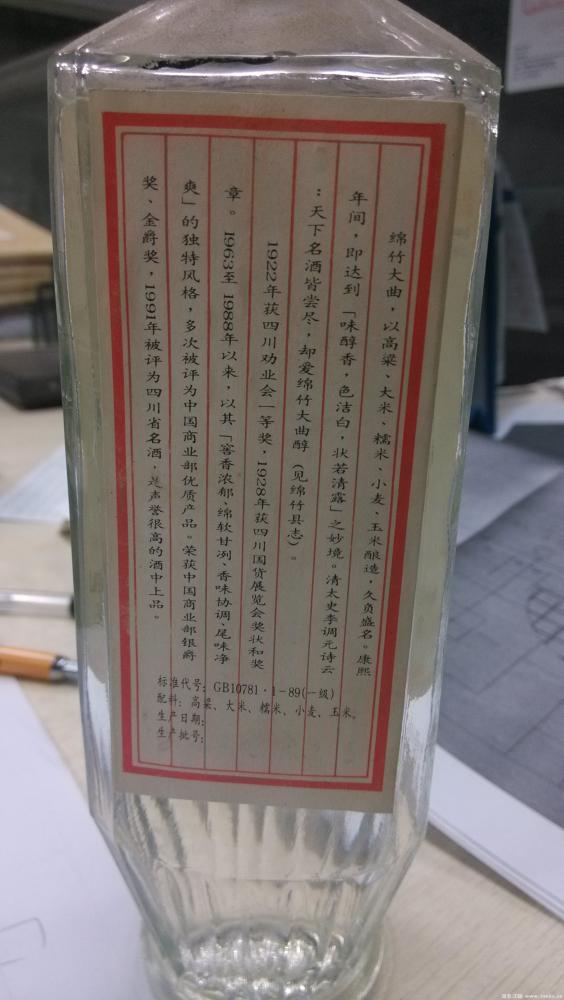 绵竹大曲，以高粱、大米、糯米、小麦、玉米酿造，久负盛名。康熙
年间，即达到「味醇香，色洁白，状若清露」之妙境。清太史李调元诗云
：天下名酒皆尝尽，却爱绵竹大曲醇（见绵竹县志）。
1922年获四川劝业会一等奖，1928年获四川国货展览会奖状和奖
章。1963至1988年以来，以其「窖香浓郁、绵软甘冽、香味协调、尾味净
爽」的独特风格，多次被评为中国商业部优质产品。荣获中国商业部银爵
奖、金爵奖，1991年被评为四川省名酒，是声誉很高的酒中上品。
标准代号：GB10781·1-89(一级)
配料：高粱、大米、糯米、小麦、玉米。
生产日期：
生产批号：